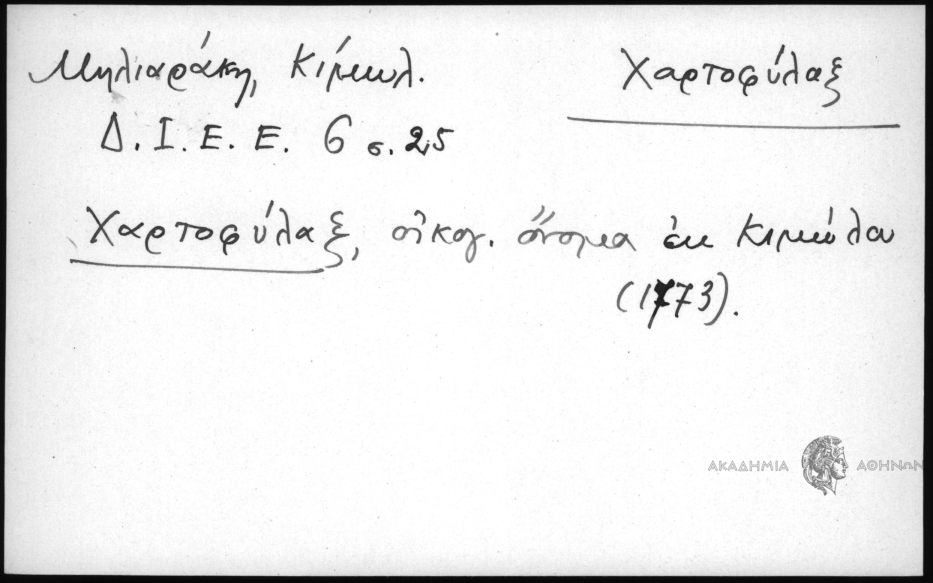 Μηλιαράκη, Κίμωλ.
Χαρτοφύλαξ
Δ. Ι. Ε. Ε. 6 σ. 25
Χαρτοφύλαξ, οἰκογ. ὄνομα ἐκ Κιμώλου
(1773).
ΑΚΑΔΗΜΙΑ ΑΘΗΝΩΝ